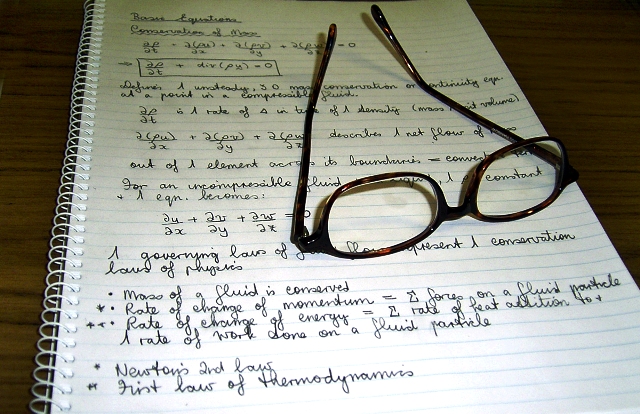 Basic Equations
Conservation of Mass
∂ρ/∂t + ∂(ρu)/∂x + ∂(ρv)/∂y + ∂(ρw)/∂z = 0
⇒ ∂ρ/∂t + div(ρu) = 0
Defines 1 unsteady, 3D mass conservation or continuity eqn.
at a point in a compressible fluid.
∂ρ/∂t is 1 rate of Δ in time of 1 density (mass volume)
∂(ρu)/∂x + ∂(ρv)/∂y + ∂(ρw) describes 1 net flow of mass
out of 1 element across its boundaries =
For an incompressible fluid 1 constant
+ 1 eqn. becomes:
∂u/∂x + ∂v/∂y + ∂w/∂z = 0
1 governing laws of flow represent 1 conservation
laws of physics
• Mass of a fluid is conserved
*• Rate of change of momentum = Σ forces on a fluid particle
**• Rate of change of energy = Σ rate of heat addition to +
1 rate of work done on a fluid particle
* Newtons 2nd law
** First law of thermodynamics